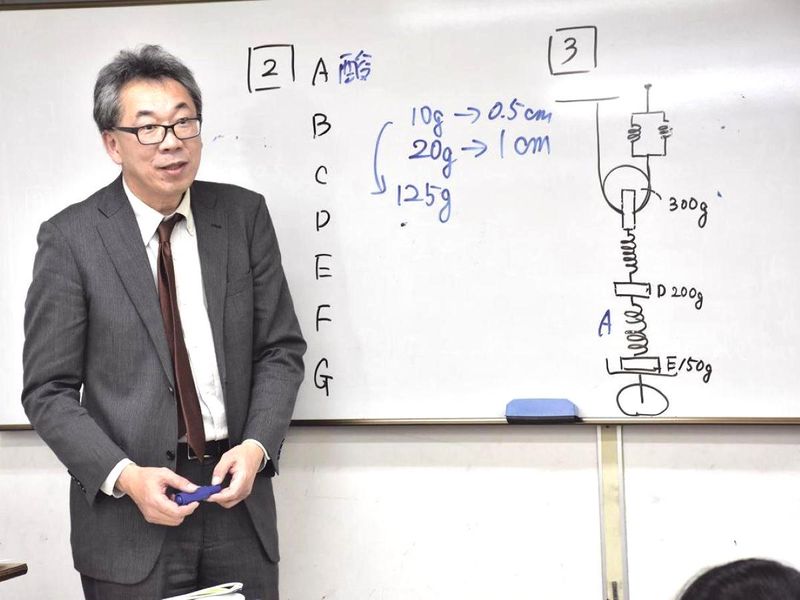 2
A 酸
B
C
D
E
F
G
10g → 0.5cm
20g → 1cm
125g
3
300g
D 200g
A
E 150g